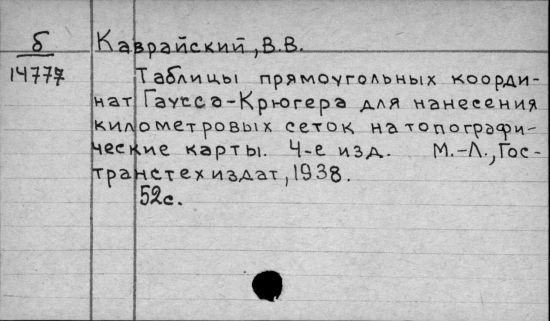 б Каврайский, В.В.
14777 Таблицы прямоугольных коорди-
нат Гаусса-Крюгера для нанесения
километровых сеток на топографи-
ческие карты. 4-е изд. М.-Л., Гос-
транстехиздат, 1938.
52с.